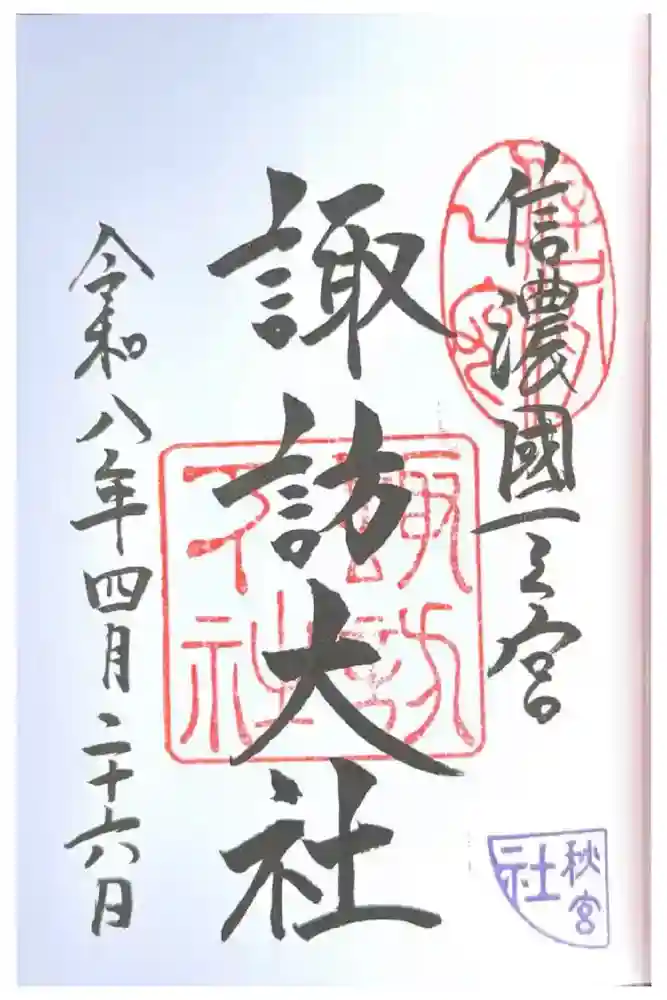 信濃國一之宮
諏訪大社
令和八年四月二十六日
諏訪
下社
秋宮
社